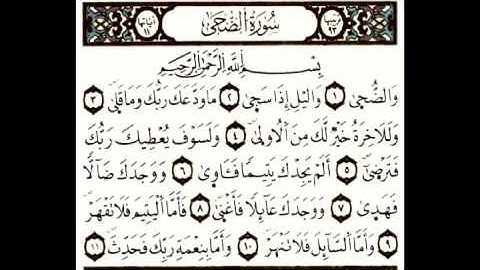 ترتيبها ٩٣ سُورَةُ الضُّحَىٰ آياتها ١١
بِسْمِ اللَّهِ الرَّحْمَٰنِ الرَّحِيمِ
وَالضُّحَىٰ ١ وَالَّيْلِ إِذَا سَجَىٰ ٢ مَا وَدَّعَكَ رَبُّكَ وَمَا قَلَىٰ ٣
وَلَلْآخِرَةُ خَيْرٌ لَّكَ مِنَ الْأُولَىٰ ٤ وَلَسَوْفَ يُعْطِيكَ رَبُّكَ
فَتَرْضَىٰ ٥ أَلَمْ يَجِدْكَ يَتِيمًا فَـَٔاوَىٰ ٦ وَوَجَدَكَ ضَآلًّا
فَهَدَىٰ ٧ وَوَجَدَكَ عَآئِلًا فَأَغْنَىٰ ٨ فَأَمَّا الْيَتِيمَ فَلَا تَقْهَرْ
٩ وَأَمَّا السَّآئِلَ فَلَا تَنْهَرْ ١٠ وَأَمَّا بِنِعْمَةِ رَبِّكَ فَحَدِّثْ ١١